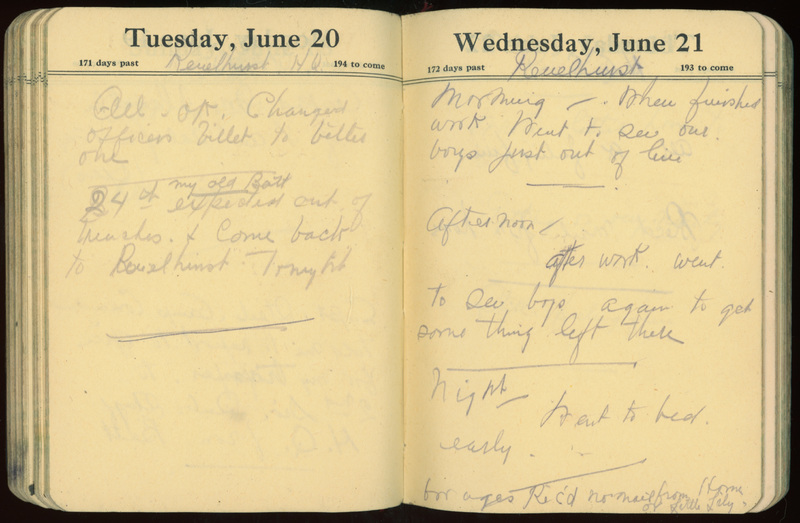 Tuesday, June 20
171 days past
194 to come
Renelhurst H Q
All - OK. Changed
officers billet to better
one
my old Batt
24th expected out of
trenches. & Come back
to Renelhurst Tonight
Wednesday, June 21
172 days past
193 to come
Renelhurst
Morning - . When finished
work Went to see our
boys just out of line
Afternoon /
after work. went
to see boys again to get
some thing left there
Night
Went to bed.
early.
for ages Rec'd no mail from Home
or Little Lily.